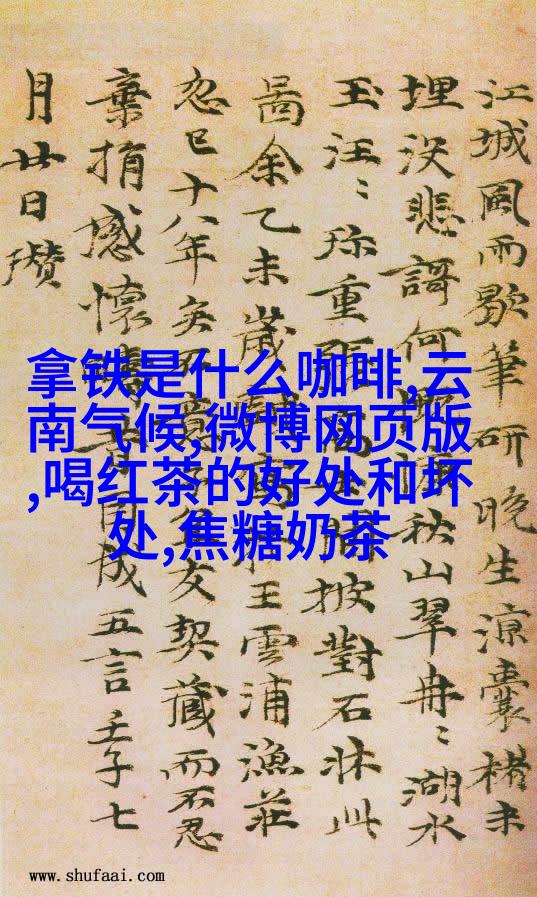 江城風雨歇筆研晚生涼囊楮未
埋沒悲謌何秋山翠冉〻湖水
玉汪〻珎重披對石牀此
啚余乙未歲王雲浦漁莊
忽已十八年矣不意友契藏而不忍
棄捐感懷因成五言壬子七
月廿日瓚
拿铁是什么咖啡,云
南气候,微博网页版
,喝红茶的好处和坏
处,焦糖奶茶
www.shufaai.com